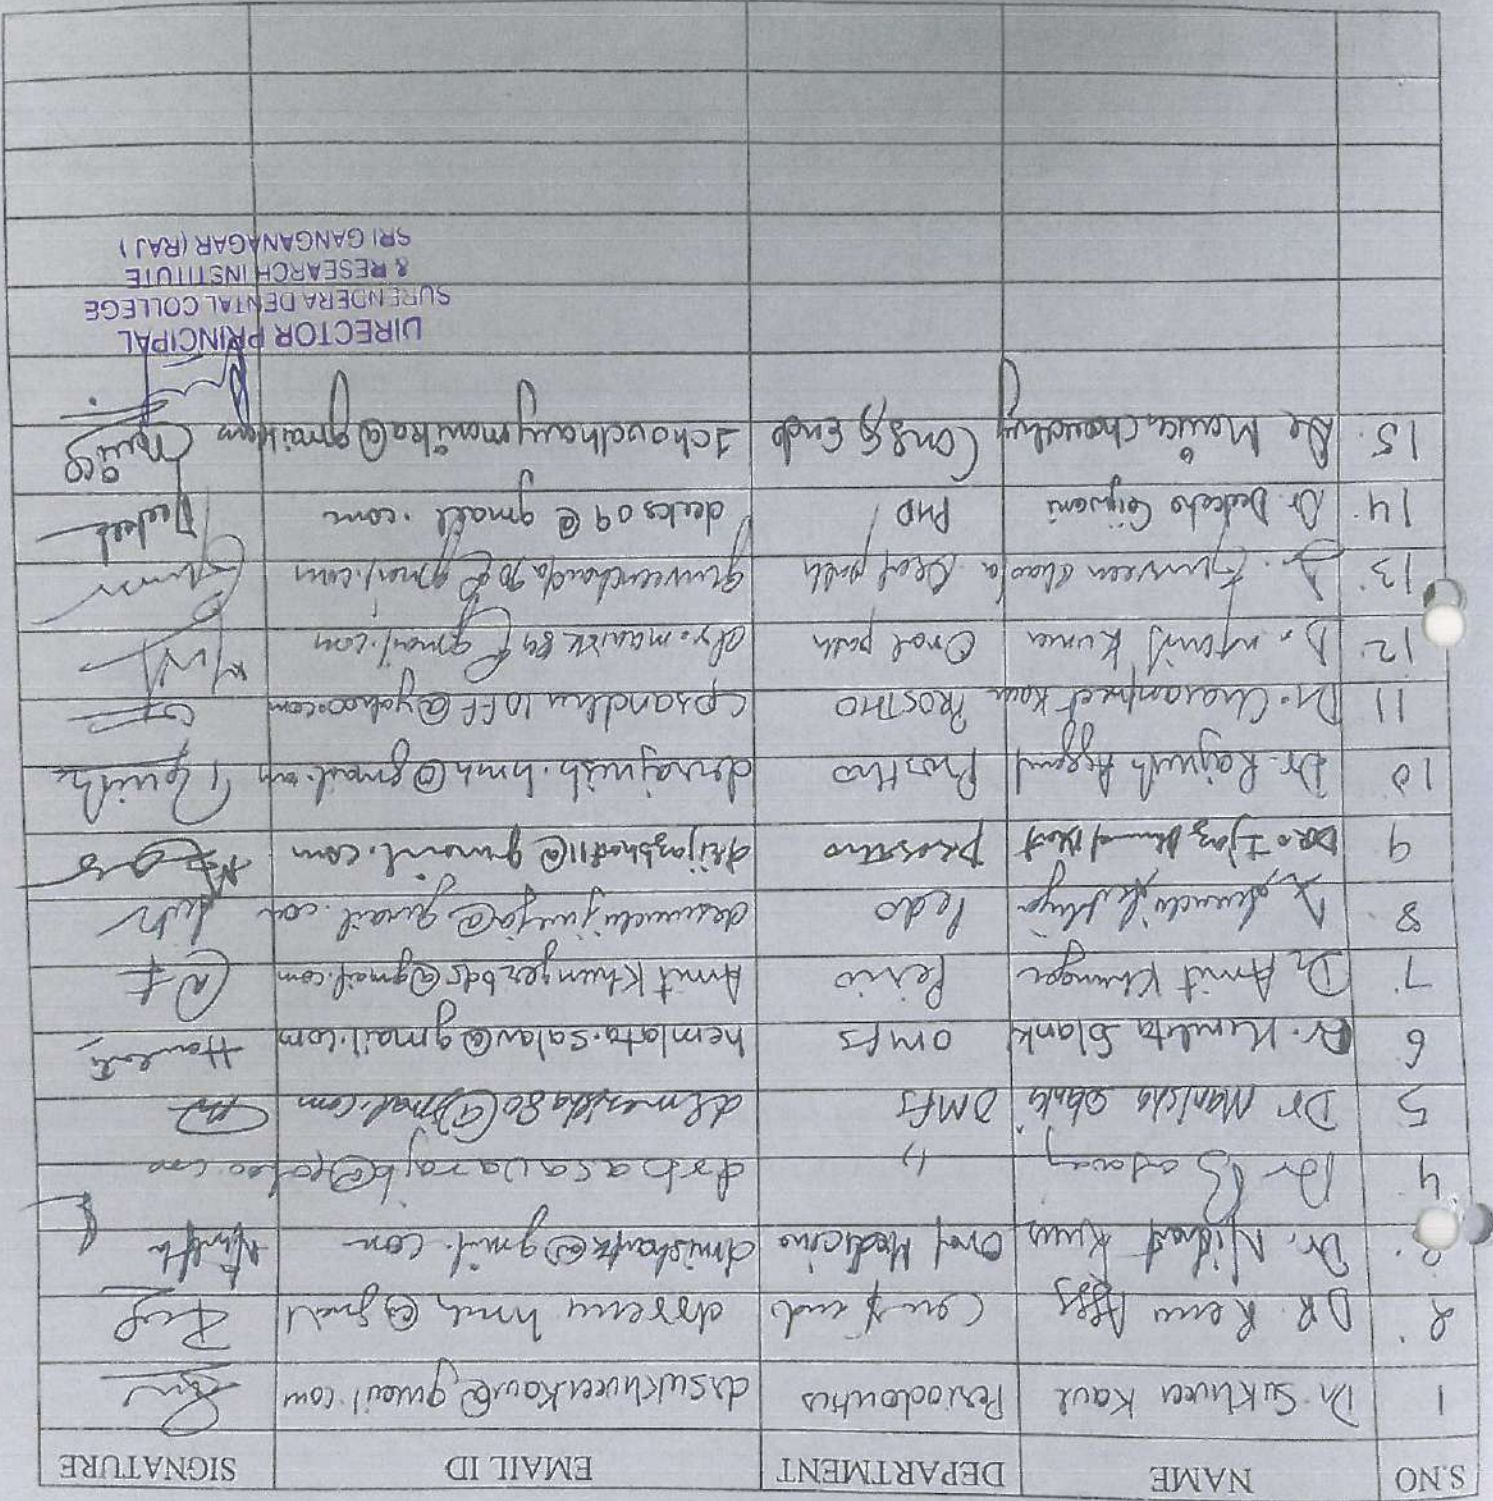 S.NO NAME DEPARTMENT EMAIL ID SIGNATURE
1 Dr. Sukhveer Kaur Periodontics drsukhveerkaur@gmail.com
2. DR. Renu Cons & endo @gmail
3. Dr. Nishant Kumar Oral Medicine
4 Dr Basavaraj 11 drbasavarajb@yahoo.com
5 Dr Manisha Solanki OMFS
6 Dr. Hemlata Solanki OMFS hemlata.salar@gmail.com
7. Dr Amit Khunger Perio AmitKhungerbds@gmail.com
8 Pedo
9 Prostho drijazbhat11@gmail.com
10 Dr. Rajnish Aggarwal Prostho drrajnish.hmh@gmail.com
11 Dr. Charanpreet Kaur PROSTHO cpsandhu10ff@yahoo.com
12. Dr. Manish Kumar Oral path dr.manishk89@gmail.com
13. Dr. Gurveen Chawla Oral path gurveenchawla90@gmail.com
14. Dr Deeksha Gijwani PHD deeks09@gmail.com
15. Dr Monika Choudhary Cons & Endo 1choudharymonika@gmail.com
DIRECTOR PRINCIPAL
SURENDERA DENTAL COLLEGE
& RESEARCH INSTITUTE
SRI GANGANAGAR (RAJ)